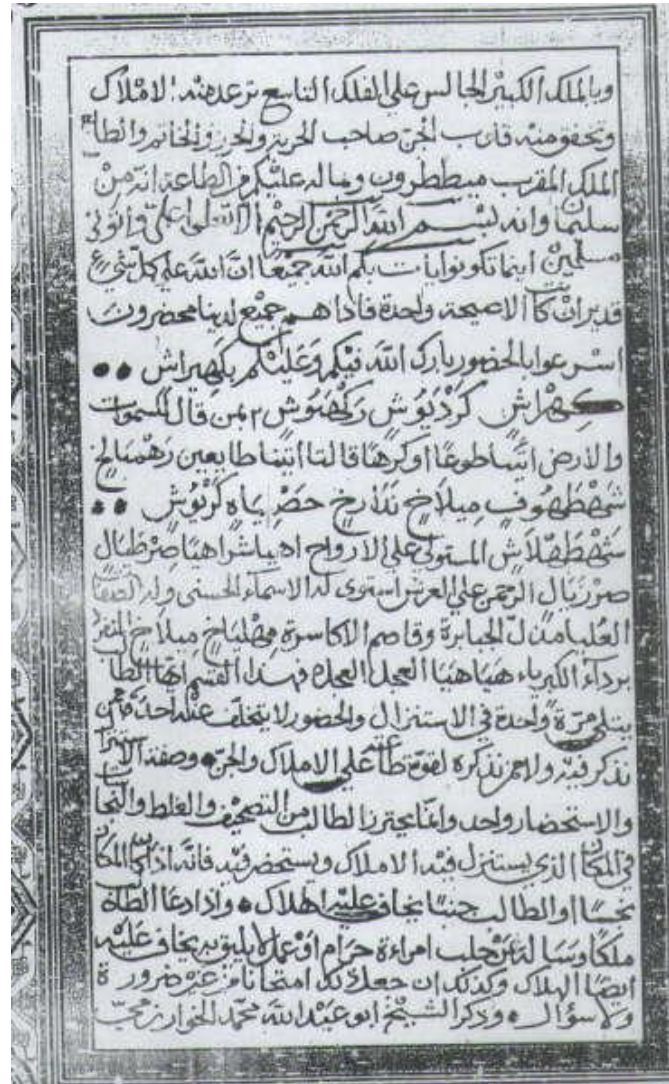 وبالملك الكبير الجالس علي الفلك التاسع ترعد منه الاملاك
وتخفق منه قلوب الجن صاحب الحربة والحرز والخاتم والطا
الملك المقرب ميططرون وماله عليكم من الطاعة انه من
سليمان وانه بسم الله الرحمن الرحيم الا تعلوا علي واتوني
مسلمين اينما تكونوا يات بكم الله جميعا ان الله علي كل شيء
قدير ان كانت الا صيحة واحدة فاذا هم جميع لدينا محضرون
اسرعوا بالحضور بارك الله فيكم وعليكم بكهيراش
كهراش كَرْدَيُوش رَكْهَنُوش ٢ بمن قال للسموات
والارض ائتيا طوعًا او كرهًا قالتا اتينا طايعين
شَهْطَهُوفٍ مِيلَاخٍ
المستولي علي الارواح
الرحمن علي العرش استوي له الاسماء الحسني وله الصفات
العليا مذل الجبابرة وقاصم الاكاسرة
برداء الكبرياء هَيَا هَيَا العجل العجل فهذا القسم ايها الطا
يتلي مرة واحدة في الاستنزال والحضور لا يتخلف عنه احد ممن
تذكر فيه ولا من تذكره لقوة طاعته علي الاملاك والجن وصفة الا
والاستحضار واحد وانما يحترز الطالب من التصحيف والغلط والنجا
في المكان الذي يستنزل فيه الاملاك ويستحضر فيه فانه اذا كان المكان
نجسًا او الطالب جنبًا يخاف عليه الهلاك واذا دعا الطالب
ملكًا وساله عن جلب امراءة حرام او عمل لا يليق به يخاف عليه
ايضا الهلاك وكذلك ان جعل ذلك امتحانا من غير ضرورة
ولا سؤال وذكر الشيخ ابو عبد الله محمد الخوارزمي